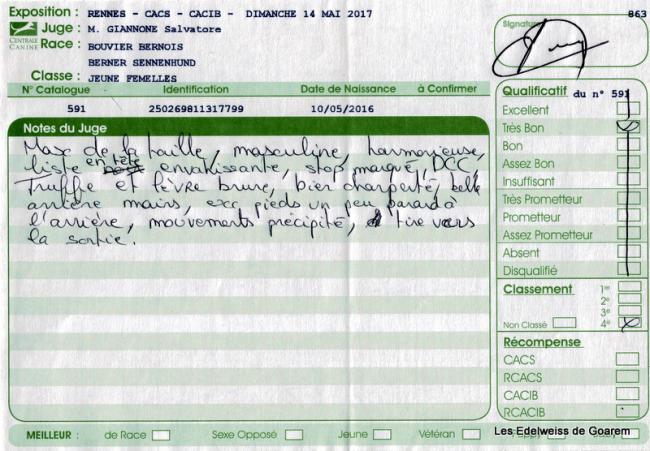 Exposition : RENNES - CACS - CACIB - DIMANCHE 14 MAI 2017
863
CENTRALE CANINE
Juge : M. GIANNONE Salvatore
Signature
Race : BOUVIER BERNOIS
BERNER SENNENHUND
Classe : JEUNE FEMELLES
N° Catalogue Identification Date de Naissance à Confirmer
591 250269811317799 10/05/2016
Qualificatif du n° 591
Excellent
Très Bon
Bon
Assez Bon
Insuffisant
Très Prometteur
Prometteur
Assez Prometteur
Absent
Disqualifié
Notes du Juge
Max de la taille, masculine, harmonieuse,
liste en tête envahissante, stop marqué, DCC,
Truffe et lèvre brune, bien charpenté, belle
arrière mains, exc pieds un peu panard à
l'arrière, mouvements précipité, tire vers
la sortie.
Classement 1er
2e
3e
Non Classé 4e
Récompense
CACS
RCACS
CACIB
RCACIB
MEILLEUR : de Race Sexe Opposé Jeune Vétéran
Les Edelweiss de Goarem